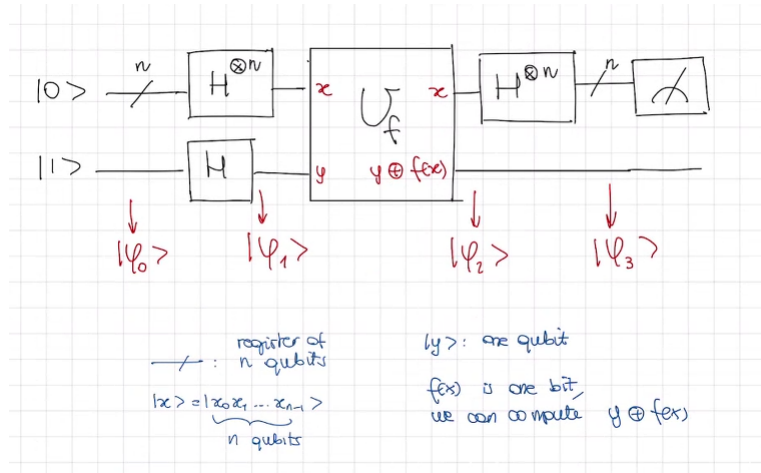 n n
|0> H⊗n x x H⊗n
U_f
|1> H y y ⊕ f(x)
|φ₀> |φ₁> |φ₂> |φ₃>
register of
: n qubits
|x> = |x₀x₁ ... xₙ₋₁>
n qubits
|y>: one qubit
f(x) is one bit,
we can compute y ⊕ f(x)